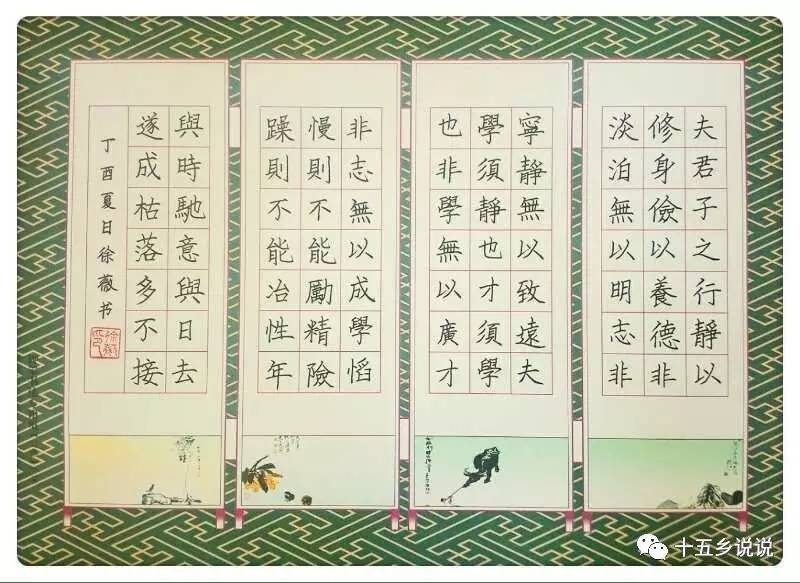 夫君子之行靜以
修身儉以養德非
淡泊無以明志非
寧靜無以致遠夫
學須靜也才須學
也非學無以廣才
非志無以成學慆
慢則不能勵精險
躁則不能冶性年
與時馳意與日去
遂成枯落多不接
丁酉夏日徐薇书
十五乡说说